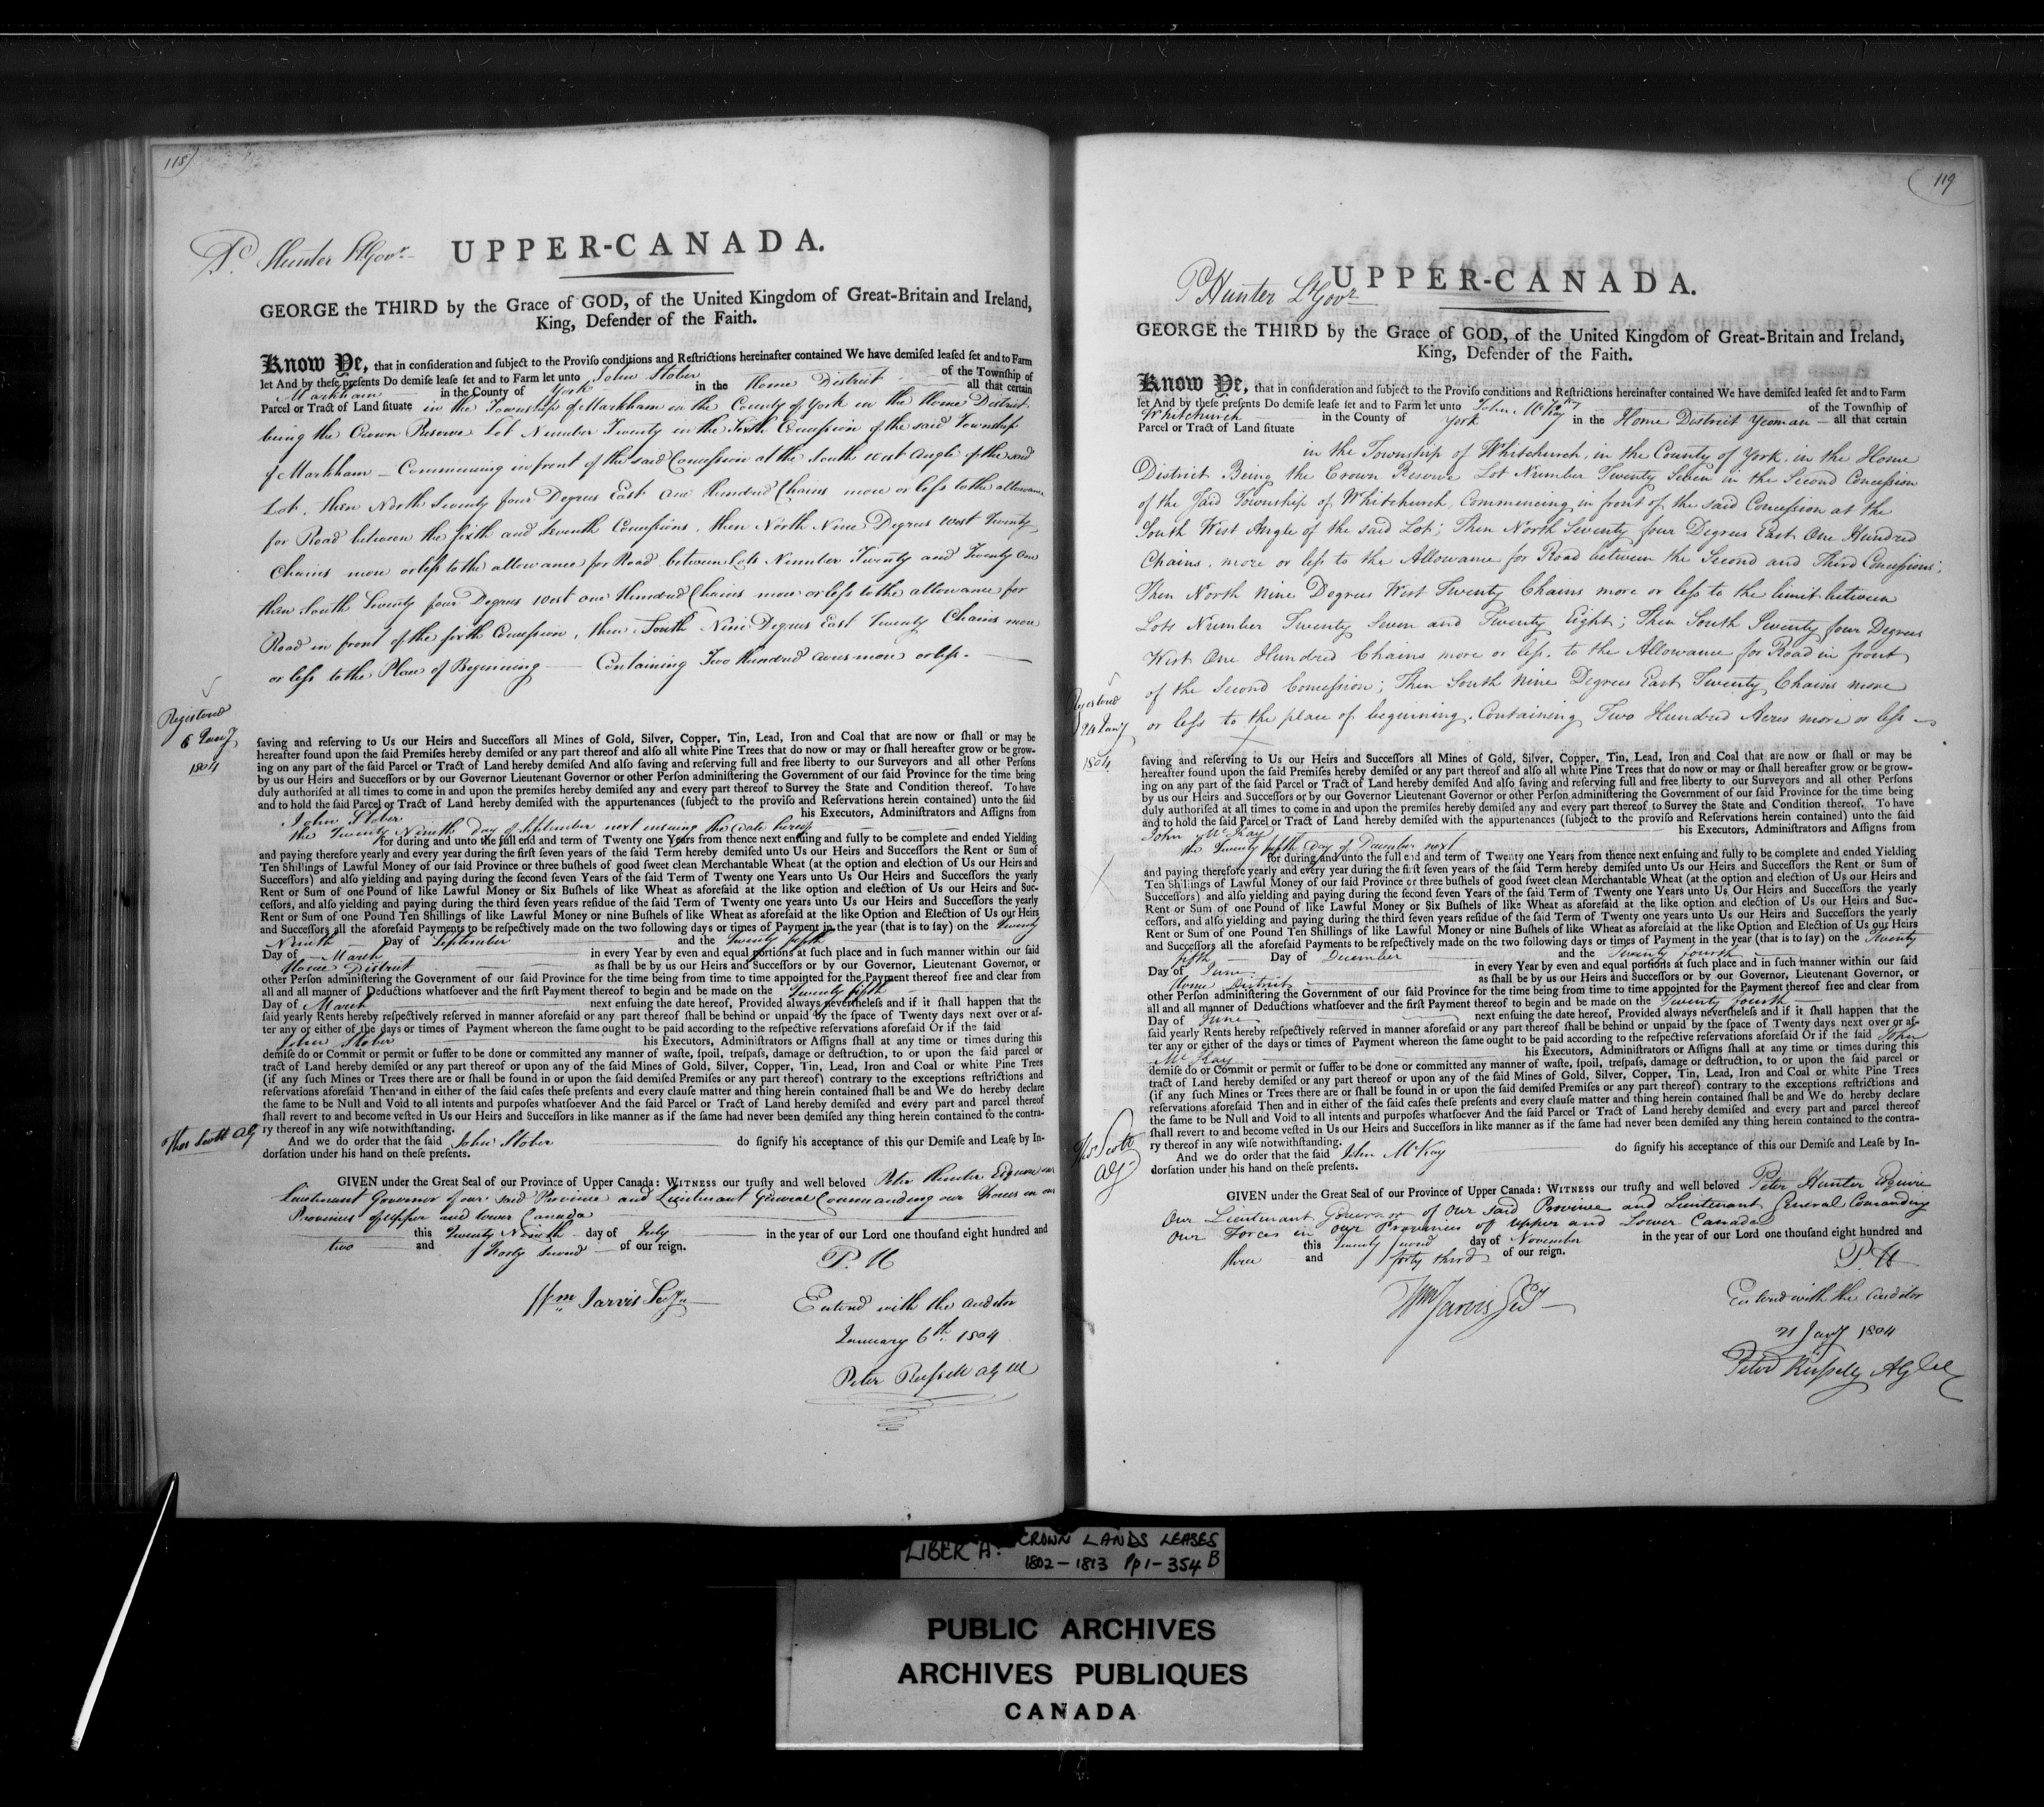 118
P. Hunter Lt Govr
UPPER-CANADA.
GEORGE the THIRD by the Grace of GOD, of the United Kingdom of Great-Britain and Ireland,
King, Defender of the Faith.
Know Ye, that in conſideration and ſubject to the Proviſo conditions and Reſtrictions hereinafter contained We have demiſed leaſed ſet and to Farm
let And by theſe preſents Do demiſe leaſe ſet and to Farm let unto John Stober of the Township of
Markham in the County of York in the Home District all that certain
Parcel or Tract of Land ſituate in the Township of Markham in the County of York in the Home District
being the Crown Reserve Lot Number Twenty in the Sixth Concession of the said Township
of Markham — Commencing in front of the said Concession at the South West Angle of the said
Lot, then North Seventy four Degrees East One Hundred Chains more or leſs to the allowance
for Road between the sixth and seventh Concessions, then North Nine Degrees West Twenty
Chains more or leſs to the allowance for Road between Lots Number Twenty and Twenty One
then South Seventy four Degrees West one Hundred Chains more or leſs to the allowance for
Road in front of the sixth Concession, then South Nine Degrees East Twenty Chains more
or leſs to the Place of Beginning — Containing Two Hundred acres more or leſs.
Registered
6 Jany
1804
ſaving and reſerving to Us our Heirs and Succeſſors all Mines of Gold, Silver, Copper, Tin, Lead, Iron and Coal that are now or ſhall or may be
hereafter found upon the ſaid Premiſes hereby demiſed or any part thereof and alſo all white Pine Trees that do now or may or ſhall hereafter grow or be grow-
ing on any part of the ſaid Parcel or Tract of Land hereby demiſed And alſo ſaving and reſerving full and free liberty to our Surveyors and all other Perſons
by us our Heirs and Succeſſors or by our Governor Lieutenant Governor or other Perſon adminiſtering the Government of our ſaid Province for the time being
duly authoriſed at all times to come in and upon the premiſes hereby demiſed any and every part thereof to Survey the State and Condition thereof. To have
and to hold the ſaid Parcel or Tract of Land hereby demiſed with the appurtenances (ſubject to the proviſo and Reſervations herein contained) unto the ſaid
John Stober his Executors, Adminiſtrators and Aſſigns from
the Twenty Ninth day of September next ensuing the date hereof
for during and unto the full end and term of Twenty one Years from thence next enſuing and fully to be complete and ended Yielding
and paying therefore yearly and every year during the firſt ſeven years of the ſaid Term hereby demiſed unto Us our Heirs and Succeſſors the Rent or Sum of
Ten Shillings of Lawful Money of our ſaid Province or three buſhels of good ſweet clean Merchantable Wheat (at the option and election of Us our Heirs and
Succeſſors) and alſo yielding and paying during the ſecond ſeven Years of the ſaid Term of Twenty one Years unto Us Our Heirs and Succeſſors the yearly
Rent or Sum of one Pound of like Lawful Money or Six Buſhels of like Wheat as aforeſaid at the like option and election of Us our Heirs and Suc-
ceſſors, and alſo yielding and paying during the third ſeven years reſidue of the ſaid Term of Twenty one years unto Us our Heirs and Succeſſors the yearly
Rent or Sum of one Pound Ten Shillings of like Lawful Money or nine Buſhels of like Wheat as aforeſaid at the like Option and Election of Us our Heirs
and Succeſſors all the aforeſaid Payments to be reſpectively made on the two following days or times of Payment in the year (that is to ſay) on the Twenty
Ninth Day of September and the Twenty fifth
Day of March in every Year by even and equal portions at ſuch place and in ſuch manner within our ſaid
Home District as ſhall be by us our Heirs and Succeſſors or by our Governor, Lieutenant Governor, or
other Perſon adminiſtering the Government of our ſaid Province for the time being from time to time appointed for the Payment thereof free and clear from
all and all manner of Deductions whatſoever and the firſt Payment thereof to begin and be made on the Twenty fifth
Day of March next enſuing the date hereof, Provided always nevertheleſs and if it ſhall happen that the
ſaid yearly Rents hereby reſpectively reſerved in manner aforeſaid or any part thereof ſhall be behind or unpaid by the ſpace of Twenty days next over or af-
ter any or either of the days or times of Payment whereon the ſame ought to be paid according to the reſpective reſervations aforeſaid Or if the ſaid
John Stober his Executors, Adminiſtrators or Aſſigns ſhall at any time or times during this
demiſe do or Commit or permit or ſuffer to be done or committed any manner of waſte, ſpoil, treſpaſs, damage or deſtruction, to or upon the ſaid parcel or
tract of Land hereby demiſed or any part thereof or upon any of the ſaid Mines of Gold, Silver, Copper, Tin, Lead, Iron and Coal or white Pine Trees
(if any ſuch Mines or Trees there are or ſhall be found in or upon the ſaid demiſed Premiſes or any part thereof) contrary to the exceptions reſtrictions and
reſervations aforeſaid Then and in either of the ſaid caſes theſe preſents and every clauſe matter and thing herein contained ſhall be and We do hereby declare
the ſame to be Null and Void to all intents and purpoſes whatſoever And the ſaid Parcel or Tract of Land hereby demiſed and every part and parcel thereof
ſhall revert to and become veſted in Us our Heirs and Succeſſors in like manner as if the ſame had never been demiſed any thing herein contained to the contra-
ry thereof in any wiſe notwithſtanding.
Thos Scott AG
And we do order that the ſaid John Stober do ſignify his acceptance of this our Demiſe and Leaſe by In-
dorſation under his hand on theſe preſents.
GIVEN under the Great Seal of our Province of Upper Canada: WITNESS our truſty and well beloved Peter Hunter Esquire our
Lieutenant Governor of our said Province and Lieutenant General Commanding our Forces in our
Provinces of Upper and Lower Canada
this Twenty Ninth day of July in the year of our Lord one thouſand eight hundred and
two and Forty Second of our reign.
P. H
Wm Jarvis Secy
Entered with the Auditor
January 6th 1804
Peter Russell A G ll
119
P Hunter Lt Govr
UPPER-CANADA.
GEORGE the THIRD by the Grace of GOD, of the United Kingdom of Great-Britain and Ireland,
King, Defender of the Faith.
Know Ye, that in conſideration and ſubject to the Proviſo conditions and Reſtrictions hereinafter contained We have demiſed leaſed ſet and to Farm
let And by theſe preſents Do demiſe leaſe ſet and to Farm let unto John McKay of the Township of
Whitchurch in the County of York in the Home District Yeoman — all that certain
Parcel or Tract of Land ſituate
in the Township of Whitchurch, in the County of York, in the Home
District Being the Crown Reserve Lot Number Twenty Seven in the Second Concession
of the said Township of Whitchurch, Commencing in front of the said Concession at the
South West Angle of the said Lot; Then North Seventy four Degrees East One Hundred
Chains, more or leſs to the Allowance for Road between the Second and Third Concessions;
Then North Nine Degrees West Twenty Chains more or leſs to the limit between
Lots Number Twenty Seven and Twenty Eight; Then South Seventy four Degrees
West One Hundred Chains more or leſs, to the Allowance for Road in front
of the Second Concession; Then South Nine Degrees East Twenty Chains more
or leſs to the place of beginning. Containing Two Hundred Acres more or leſs
Registered
21 Jany
1804
ſaving and reſerving to Us our Heirs and Succeſſors all Mines of Gold, Silver, Copper, Tin, Lead, Iron and Coal that are now or ſhall or may be
hereafter found upon the ſaid Premiſes hereby demiſed or any part thereof and alſo all white Pine Trees that do now or may or ſhall hereafter grow or be grow-
ing on any part of the ſaid Parcel or Tract of Land hereby demiſed And alſo ſaving and reſerving full and free liberty to our Surveyors and all other Perſons
by us our Heirs and Succeſſors or by our Governor Lieutenant Governor or other Perſon adminiſtering the Government of our ſaid Province for the time being
duly authoriſed at all times to come in and upon the premiſes hereby demiſed any and every part thereof to Survey the State and Condition thereof. To have
and to hold the ſaid Parcel or Tract of Land hereby demiſed with the appurtenances (ſubject to the proviſo and Reſervations herein contained) unto the ſaid
John McKay his Executors, Adminiſtrators and Aſſigns from
the Twenty fifth Day of December next
for during and unto the full end and term of Twenty one Years from thence next enſuing and fully to be complete and ended Yielding
and paying therefore yearly and every year during the firſt ſeven years of the ſaid Term hereby demiſed unto Us our Heirs and Succeſſors the Rent or Sum of
Ten Shillings of Lawful Money of our ſaid Province or three buſhels of good ſweet clean Merchantable Wheat (at the option and election of Us our Heirs and
Succeſſors) and alſo yielding and paying during the ſecond ſeven Years of the ſaid Term of Twenty one Years unto Us Our Heirs and Succeſſors the yearly
Rent or Sum of one Pound of like Lawful Money or Six Buſhels of like Wheat as aforeſaid at the like option and election of Us our Heirs and Suc-
ceſſors, and alſo yielding and paying during the third ſeven years reſidue of the ſaid Term of Twenty one years unto Us our Heirs and Succeſſors the yearly
Rent or Sum of one Pound Ten Shillings of like Lawful Money or nine Buſhels of like Wheat as aforeſaid at the like Option and Election of Us our Heirs
and Succeſſors all the aforeſaid Payments to be reſpectively made on the two following days or times of Payment in the year (that is to ſay) on the Twenty
fifth Day of December and the Twenty fourth
Day of June in every Year by even and equal portions at ſuch place and in ſuch manner within our ſaid
Home District as ſhall be by us our Heirs and Succeſſors or by our Governor, Lieutenant Governor, or
other Perſon adminiſtering the Government of our ſaid Province for the time being from time to time appointed for the Payment thereof free and clear from
all and all manner of Deductions whatſoever and the firſt Payment thereof to begin and be made on the Twenty fourth
Day of June next enſuing the date hereof, Provided always nevertheleſs and if it ſhall happen that the
ſaid yearly Rents hereby reſpectively reſerved in manner aforeſaid or any part thereof ſhall be behind or unpaid by the ſpace of Twenty days next over or af-
ter any or either of the days or times of Payment whereon the ſame ought to be paid according to the reſpective reſervations aforeſaid Or if the ſaid John
McKay his Executors, Adminiſtrators or Aſſigns ſhall at any time or times during this
demiſe do or Commit or permit or ſuffer to be done or committed any manner of waſte, ſpoil, treſpaſs, damage or deſtruction, to or upon the ſaid parcel or
tract of Land hereby demiſed or any part thereof or upon any of the ſaid Mines of Gold, Silver, Copper, Tin, Lead, Iron and Coal or white Pine Trees
(if any ſuch Mines or Trees there are or ſhall be found in or upon the ſaid demiſed Premiſes or any part thereof) contrary to the exceptions reſtrictions and
reſervations aforeſaid Then and in either of the ſaid caſes theſe preſents and every clauſe matter and thing herein contained ſhall be and We do hereby declare
the ſame to be Null and Void to all intents and purpoſes whatſoever And the ſaid Parcel or Tract of Land hereby demiſed and every part and parcel thereof
ſhall revert to and become veſted in Us our Heirs and Succeſſors in like manner as if the ſame had never been demiſed any thing herein contained to the contra-
ry thereof in any wiſe notwithſtanding.
Thos Scott
AG
And we do order that the ſaid John McKay do ſignify his acceptance of this our Demiſe and Leaſe by In-
dorſation under his hand on theſe preſents.
GIVEN under the Great Seal of our Province of Upper Canada: WITNESS our truſty and well beloved Peter Hunter Esquire
Our Lieutenant Governor of Our said Province and Lieutenant General Comanding
Our Forces in our Provinces of Upper and Lower Canada
this Twenty second day of November in the year of our Lord one thouſand eight hundred and
three and forty third of our reign.
P. H
Wm Jarvis Secy
Entered with the Auditor
21 Jany 1804
Peter Russell, A G
LIBER A: CROWN LANDS LEASES
1802 - 1813 Pp 1 - 354 B
PUBLIC ARCHIVES
ARCHIVES PUBLIQUES
CANADA